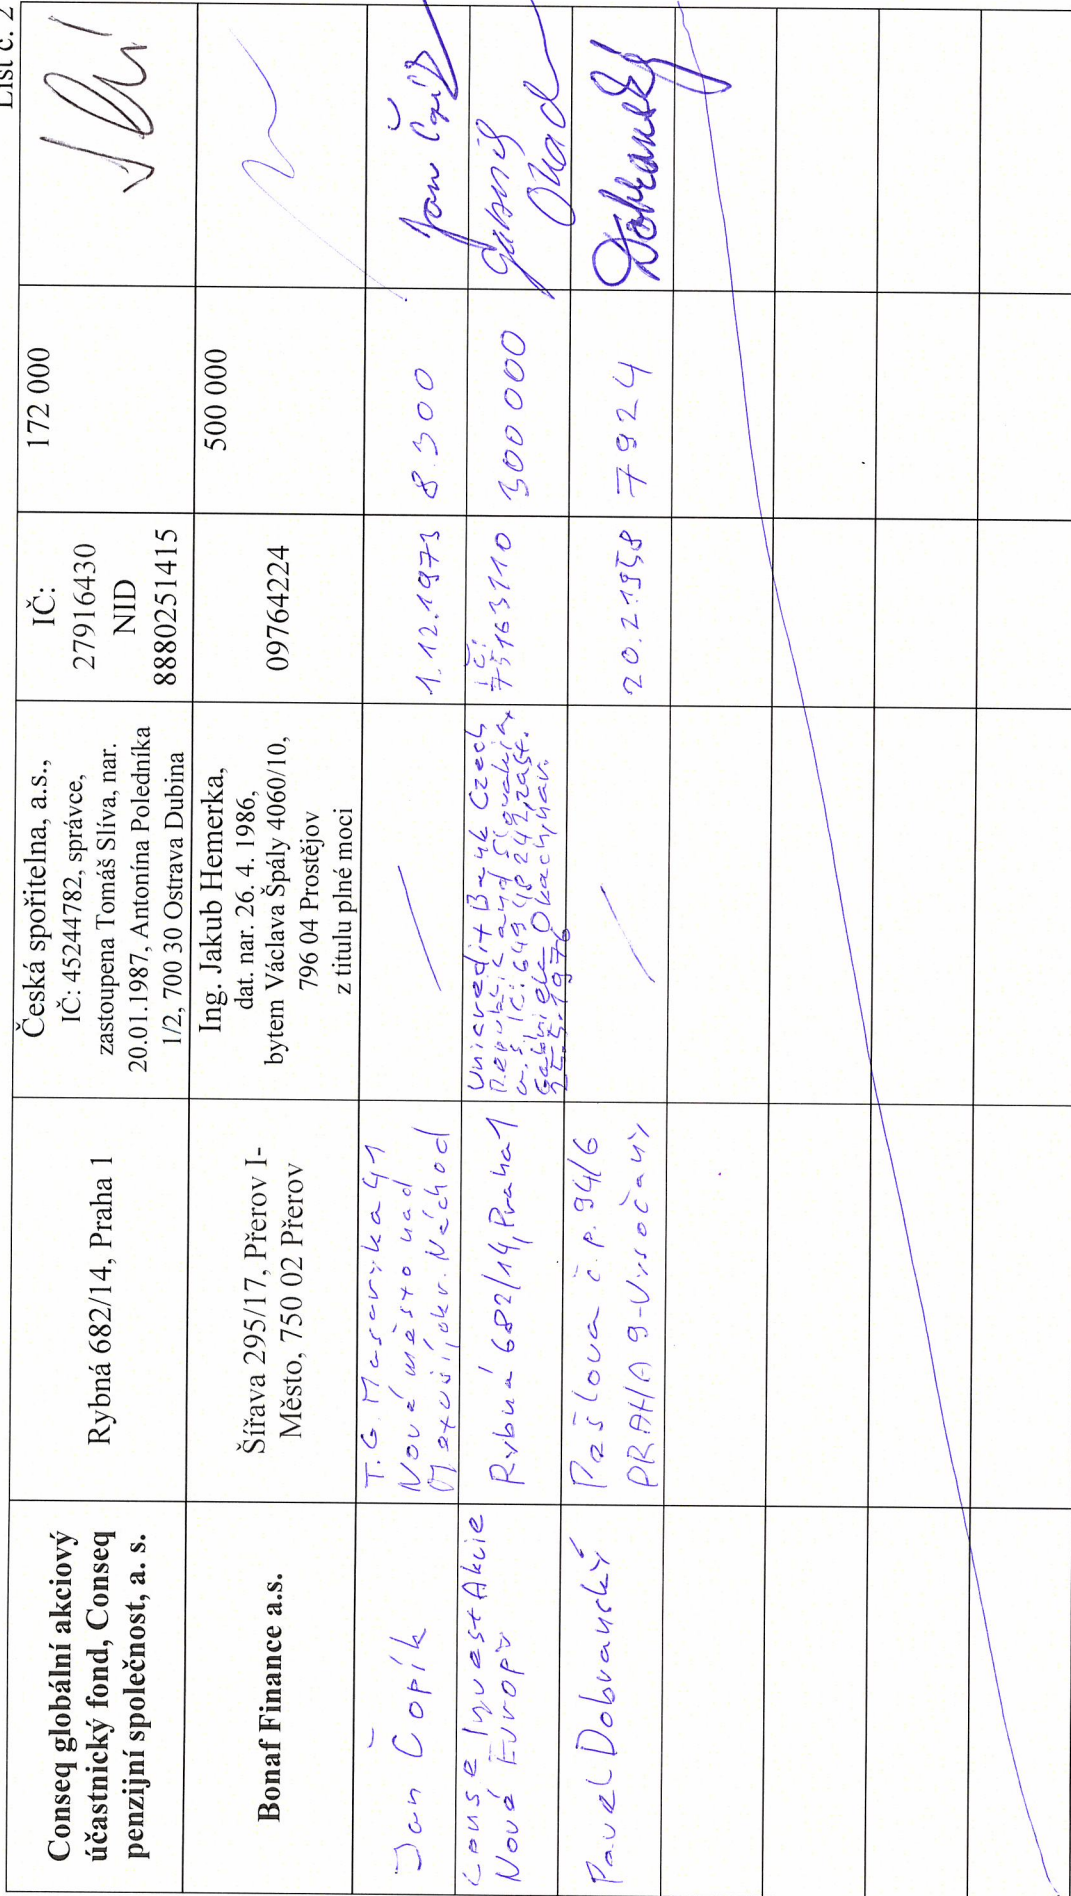 List č. 2
Conseq globální akciový
účastnický fond, Conseq
penzijní společnost, a. s.
Rybná 682/14, Praha 1
Česká spořitelna, a.s.,
IČ: 45244782, správce,
zastoupena Tomáš Slíva, nar.
20.01.1987, Antonína Poledníka
1/2, 700 30 Ostrava Dubina
IČ:
27916430
NID
8880251415
172 000
Bonaf Finance a.s.
Šířava 295/17, Přerov I-
Město, 750 02 Přerov
Ing. Jakub Hemerka,
dat. nar. 26. 4. 1986,
bytem Václava Špály 4060/10,
796 04 Prostějov
z titulu plné moci
09764224
500 000
Jan Čopík
T.G. Masaryka 41
Nové město nad
Metují, okr. Náchod
1.12.1973
8.300
Jan Čopík
Conse Invest Akcie
Nové Evropy
Rybná 682/14, Praha 1
Unicredit Bank Czech
Republic and Slovakia,
a.s. IČ: 64948242, zast.
Gabriela Okach, nar.
1976
IČ:
75163110
300 000
Okad
Pavel Dobranský
Pešlova č.p. 94/6
PRAHA 9-Vysočany
20.2.1958
7924
Dobranský